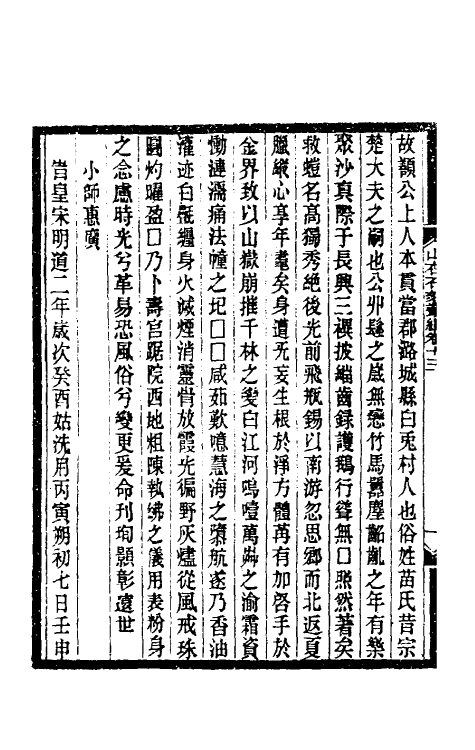 故顗公上人本貫當郡潞城縣白兎村人也俗姓苗氏昔宗
楚大夫之嗣也公丱髽之歲無戀竹馬囂塵齠齓之年有樂
聚沙真際于長興三禩披緇齒録護鵝行聳無囗㷖然著矣
救螘名高獨秀絶後光前飛瓶錫以南游忽思鄉而北返夏
臘縱心享年耄矣身遘无妄生根於淨方體苒有加咎手於
金界致以山嶽崩摧千林之變白江河嗚噎萬卉之渝霜資
慟漣濡痛法幢之圮囗囗咸茹歎噫慧海之隳航爰乃香油
灌迹白㲲纏身火滅煙消靈骨放霞光徧野灰燼從風戒珠
圓灼曜盈囗乃卜壽宮踞院西地粗陳執紼之儀用表粉身
之念慮時光兮革易恐風俗兮變更爰命刋珣顥彰遠世
小師惠廣
旹皇宋明道二年歲次癸酉姑洗用丙寅朔初七日壬申
山右石刻叢編卷十三